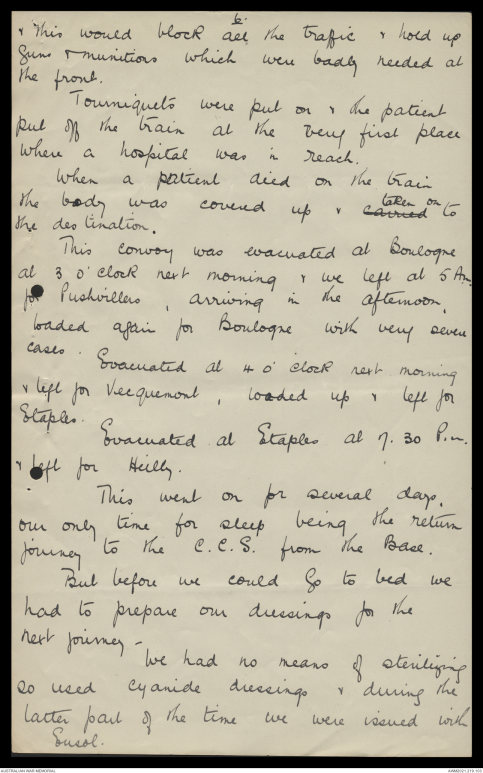 6.
& this would block all the traffic & hold up
guns & munitions which were badly needed at
the front.
Tourniquets were put on & the patient
put off the train at the very first place
where a hospital was in reach.
When a patient died on the train
the body was covered up & carried taken on to
the destination.
This convoy was evacuated at Boulogne
at 3 o'clock next morning & we left at 5 Am.
for Pushvillers, arriving in the afternoon,
loaded again for Boulogne with very severe
cases. Evacuated at 4 o'clock next morning
& left for Vecquemont, loaded up & left for
Etaples.
Evacuated at Etaples at 7.30 P.m.
& left for Heilly.
This went on for several days,
our only time for sleep being the return
journey to the C.C.S. from the Base.
But before we could Go to bed we
had to prepare our dressings for the
next journey -
We had no means of sterilizing
so used cyanide dressings & during the
latter part of the time we were issued with
Eusol.
AUSTRALIAN WAR MEMORIAL
AWM2021.219.103